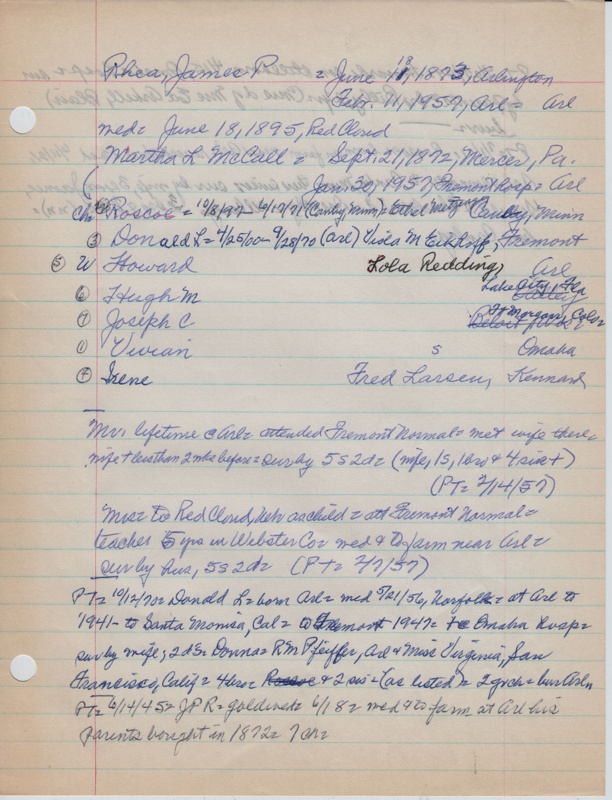 Rhea, James P = June 18, 1873, Arlington
Febr. 11, 1957, Arl = Arl
med = June 18, 1895, Red Cloud
Martha L McCall = Sept. 21, 1872, Mercer, Pa.
( Jan. 30, 1957, Fremont hosp = Arl
Ch: Roscoe = 10/8/97 - 6/17/71 (Canby, Minn) = Ethel Canby, Minn
③ Donald L = 4/25/00 - 9/28/70 (Arl) Viola M Eckhoff, Fremont
⑤ W Howard Lola Redding, Arl
⑥ Hugh M Lake City, Fla
⑦ Joseph C Ft Morgan, Colo =
① Vivian s Omaha
④ Irene Fred Larsen, Kennard
Mr: lifetime c Arl = attended Fremont Normal = met wife there =
wife + less than 2 wks before = sur by 5 s 2 d = (wife, 1s, 1 bro & 4 sis +)
(PT = 2/14/57)
Mrs = to Red Cloud, Nebr as child = att Fremont Normal =
teacher 5 yrs in Webster Co = med & to farm near Arl =
sur by hus, 5 s 2 d = (PT = 2/7/57)
PT = 10/12/70 = Donald L = born Arl = med 5/21/56, Norfolk = at Arl to
1941 - to Santa Monica, Cal = to Fremont 1947 = + c Omaha Hosp =
sur by wife; 2 ds = Donna = R M Pfeiffer, Arl & Miss Virginia, San
Francisco, Calif = 4 bro = Roscoe & 2 sis = (as listed) = 2 grch = bur Arln
PT = 6/14/45 = J P R = gold wed = 6/18 = med & to farm at Arl his
parents bought in 1872 = 7 ch =